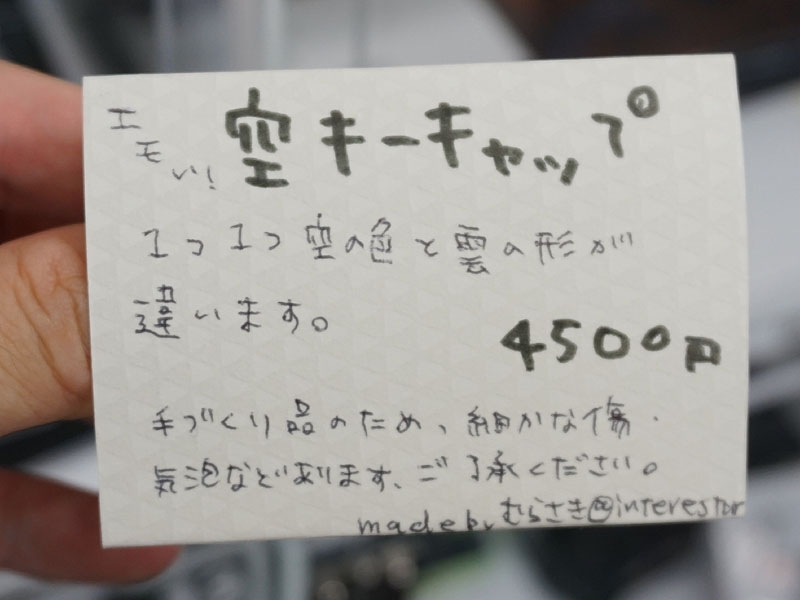 エモい! 空キーキャップ
1コ1コ空の色と雲の形が
違います。
4500円
手づくり品のため、細かな傷・
気泡などあります、ご了承ください。
made by むらさき@interestor